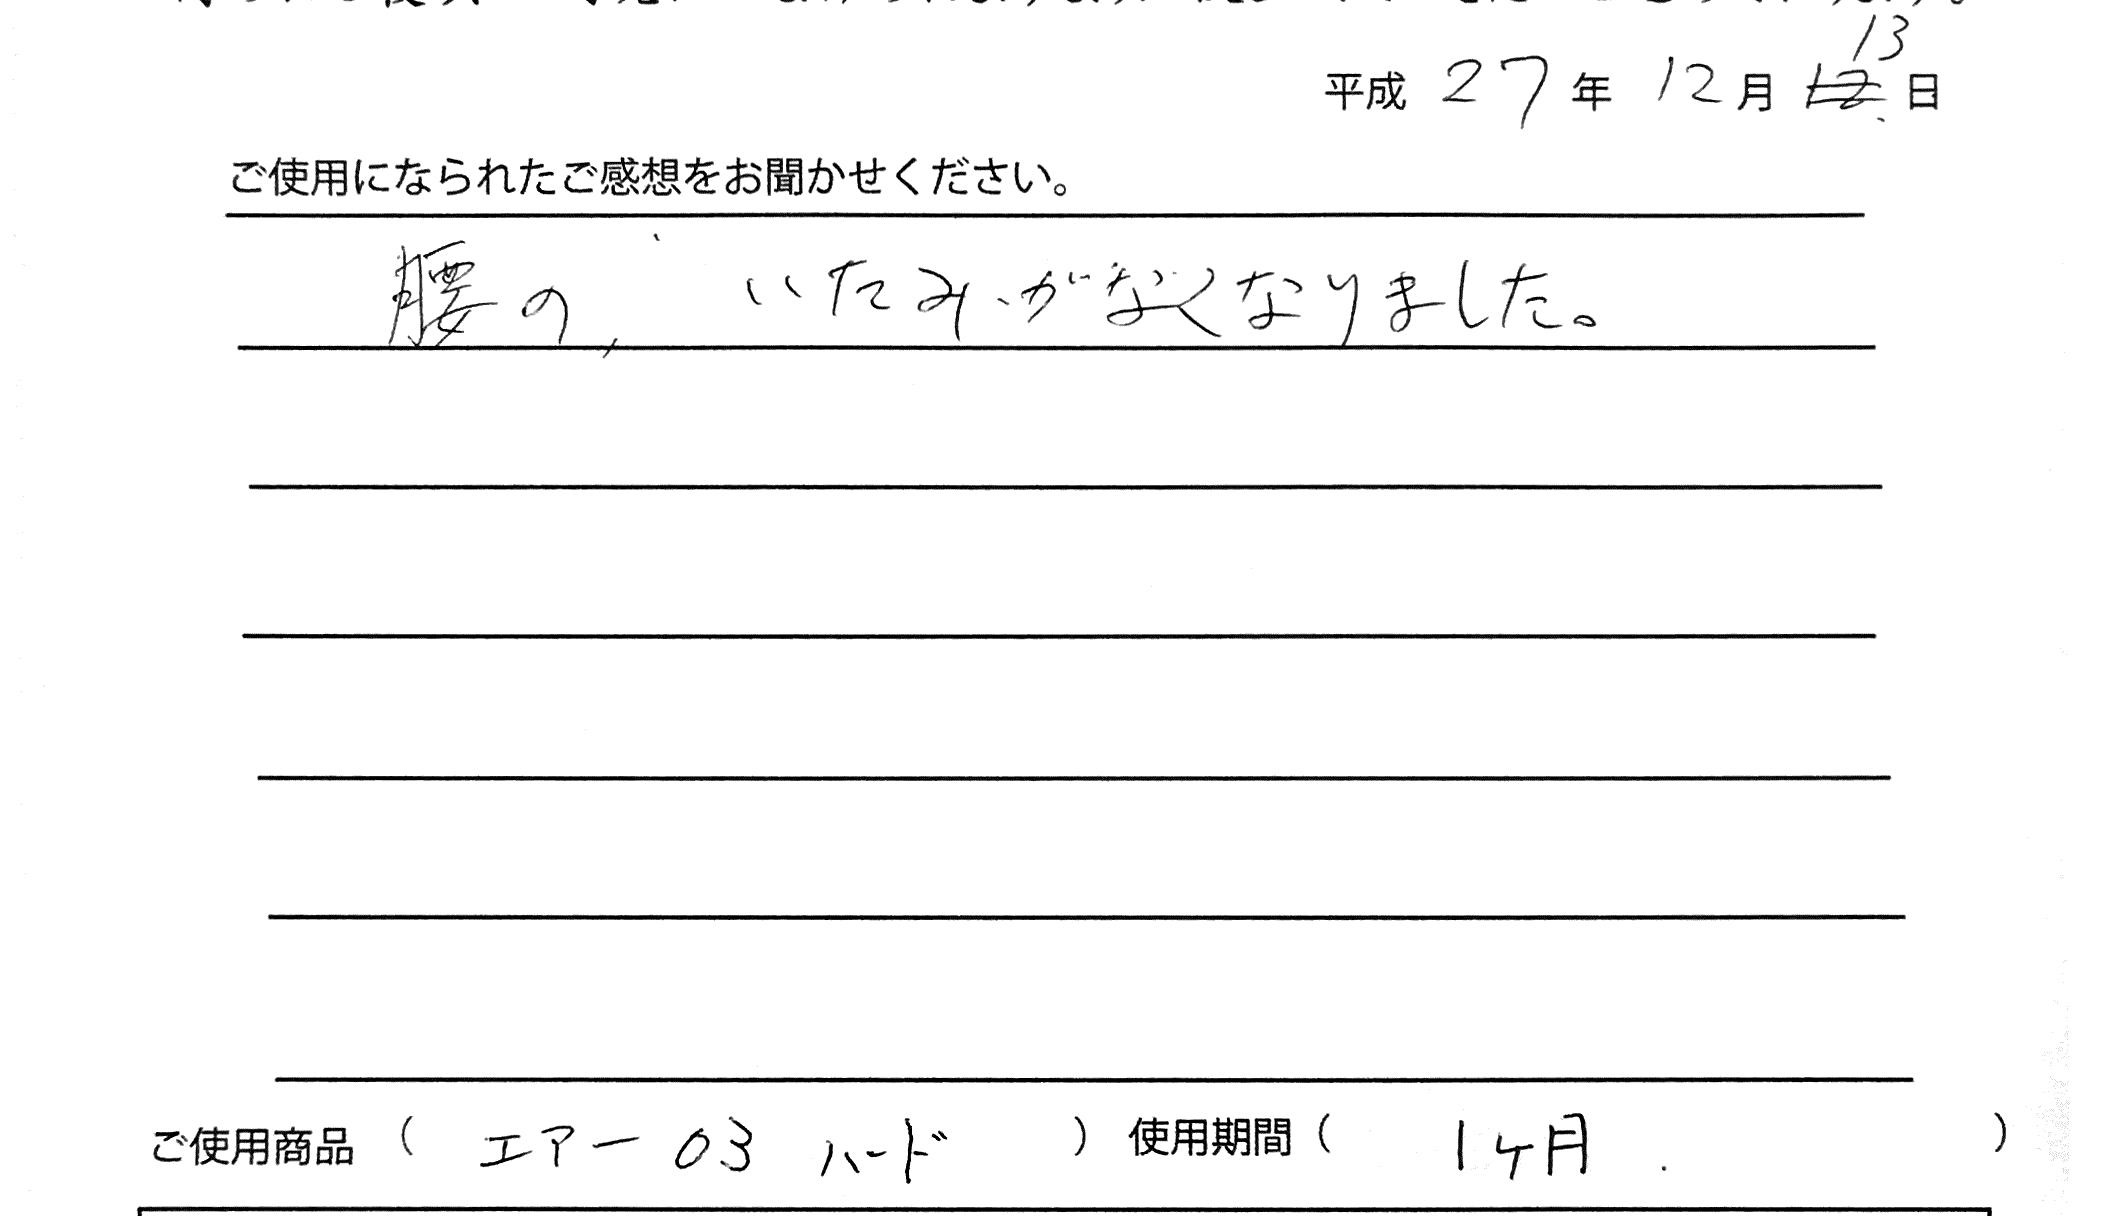 13
平成 27年 12月 12日
ご使用になられたご感想をお聞かせください。
腰の、いたみがなくなりました。
ご使用商品 （ エアー 03 ハード ） 使用期間（ 1ヶ月 ）